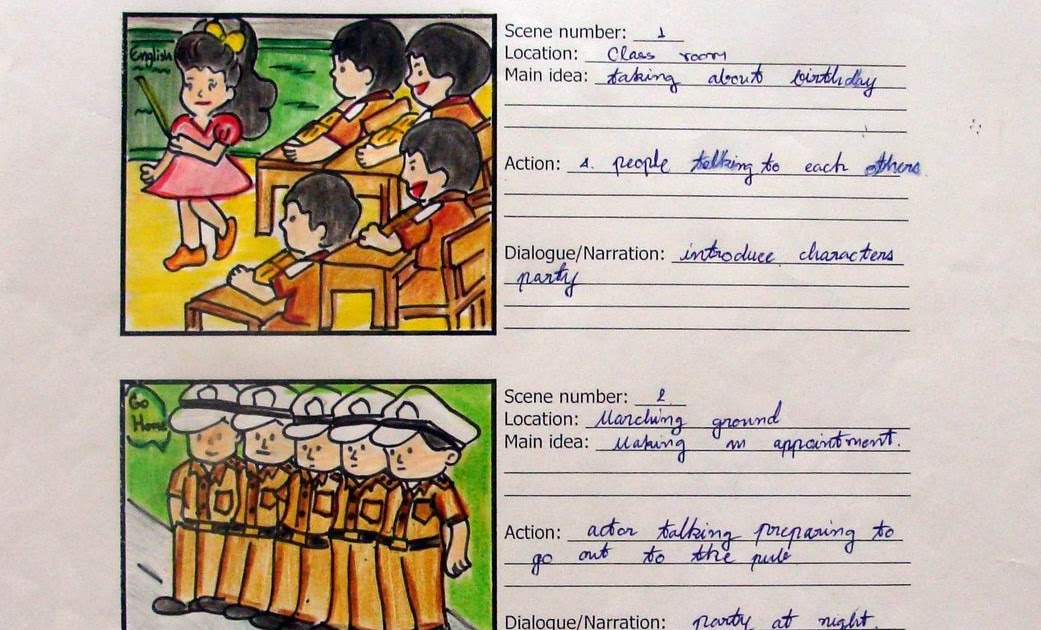 English
Scene number: 1
Location: Class room
Main idea: taking about birthday
Action: 4. people talking to each others
Dialogue/Narration: introduce characters
party
Go
Home
Scene number: 2
Location: Marching ground
Main idea: Making an appointment.
Action: actor talking preparing to
go out to the pub
Dialogue/Narration: party at night.